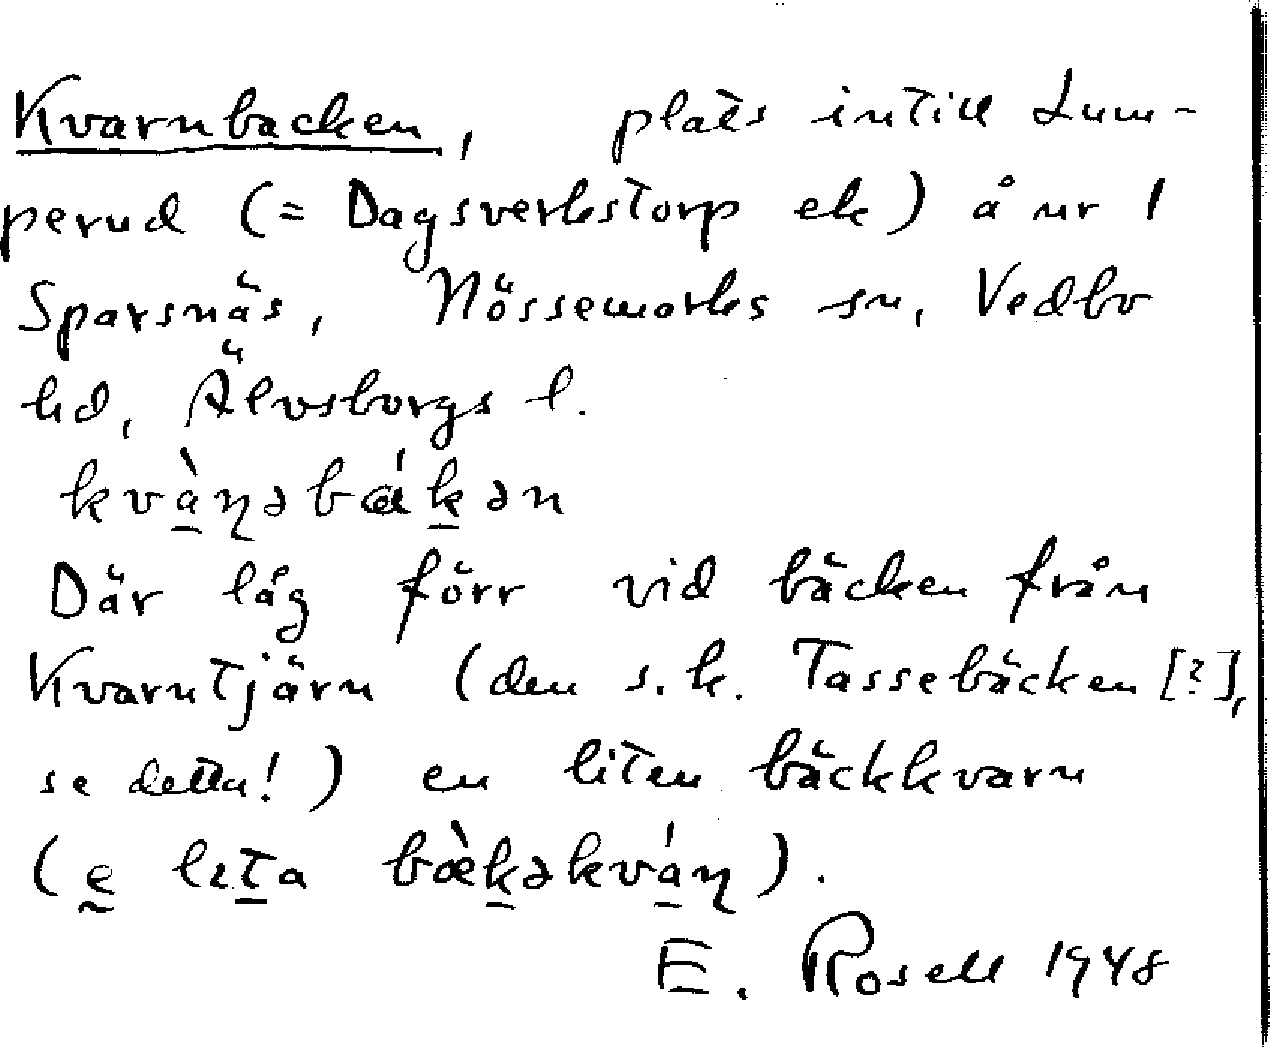 Kvarnbacken, plats intill Lum-
perud (= Dagsverkstorp ek) å nr 1
Sparsnäs, Nössemarks sn, Vedbo
hd, Älvsborgs l.
kvàɳəbákən
Där låg förr vid bäcken från
Kvarntjärn (den s.k. Tassebäcken [?],
se detta!) en liten bäckkvarn
(e lɪta bæ̀kəkváɳ).
E. Rosell 1948